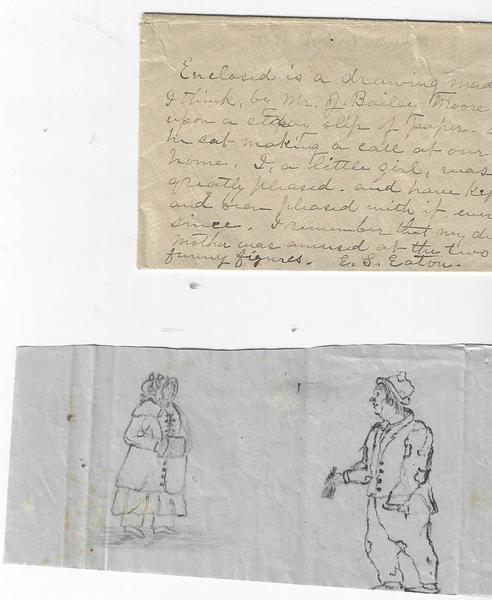 Enclosed is a drawing made
I think, by Mr. J. Bailey Moore
upon a stray slip of paper -
he sat making a call at our
home. I, a little girl, was
greatly pleased - and have kep
and been pleased with it ever
since. I remember that my de
mother was amused at the two
funny figures. E. S. Eaton.